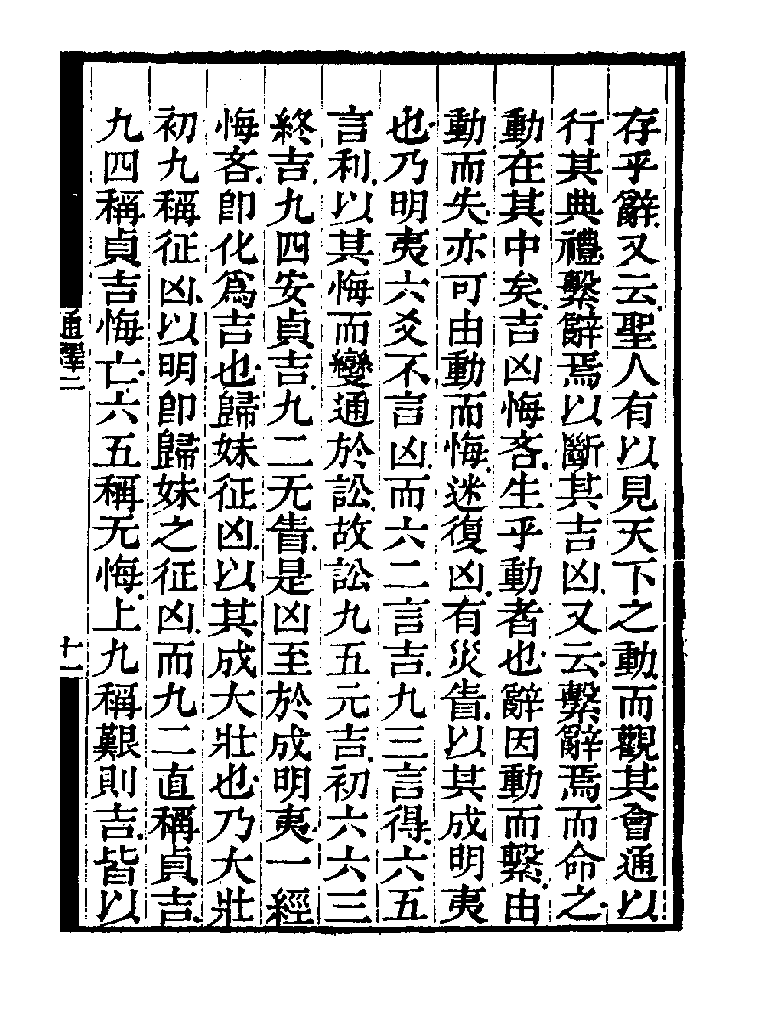 存乎辭又云聖人有以見天下之動而觀其會通以
行其典禮繫辭焉以斷其吉凶又云繫辭焉而命之
動在其中矣吉凶悔吝生乎動者也辭因動而繫由
動而失亦可由動而悔迷復凶有災眚以其成明夷
也乃明夷六爻不言凶而六二言吉九三言得六五
言利以其悔而變通於訟故訟九五元吉初六六三
終吉九四安貞吉九二无眚是凶至於成明夷一經
悔吝卽化爲吉也歸妹征凶以其成大壯也乃大壯
初九稱征凶以明卽歸妹之征凶而九二直稱貞吉
九四稱貞吉悔亡六五稱无悔上九稱艱則吉皆以
通釋二
十一